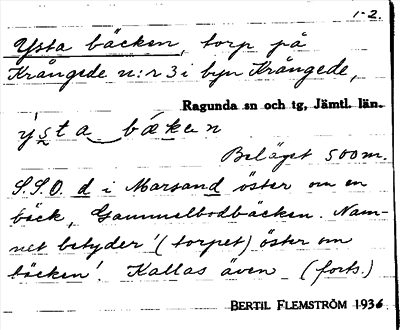 1-2.
Ysta bäcken, torp på
Krångede n:r 3 i byn Krångede,
Ragunda sn och tg, Jämtl. län.
ýsta bäcken
Beläget 500 m.
S.S.O. d i Marsand öster om en
bäck, Gammelbodbäcken. Nam-
net betyder '(torpet) öster om
bäcken'. Kallas även (forts.)
BERTIL FLEMSTRÖM 1936